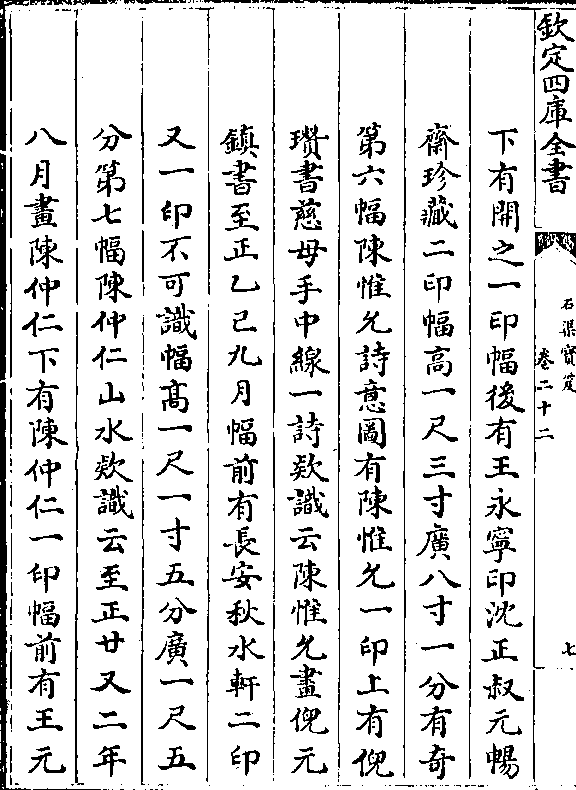 欽定四庫全書
石渠寶笈
卷二十二
七
下有開之一印幅後有王永寧印沈正叔元暢
齋珍藏二印幅高一尺三寸廣八寸一分有奇
第六幅陳惟允詩意圖有陳惟允一印上有倪
瓚書慈母手中線一詩欵識云陳惟允畫倪元
鎮書至正乙巳九月幅前有長安秋水軒二印
又一印不可識幅髙一尺一寸五分廣一尺五
分第七幅陳仲仁山水欵識云至正廿又二年
八月畫陳仲仁下有陳仲仁一印幅前有王元